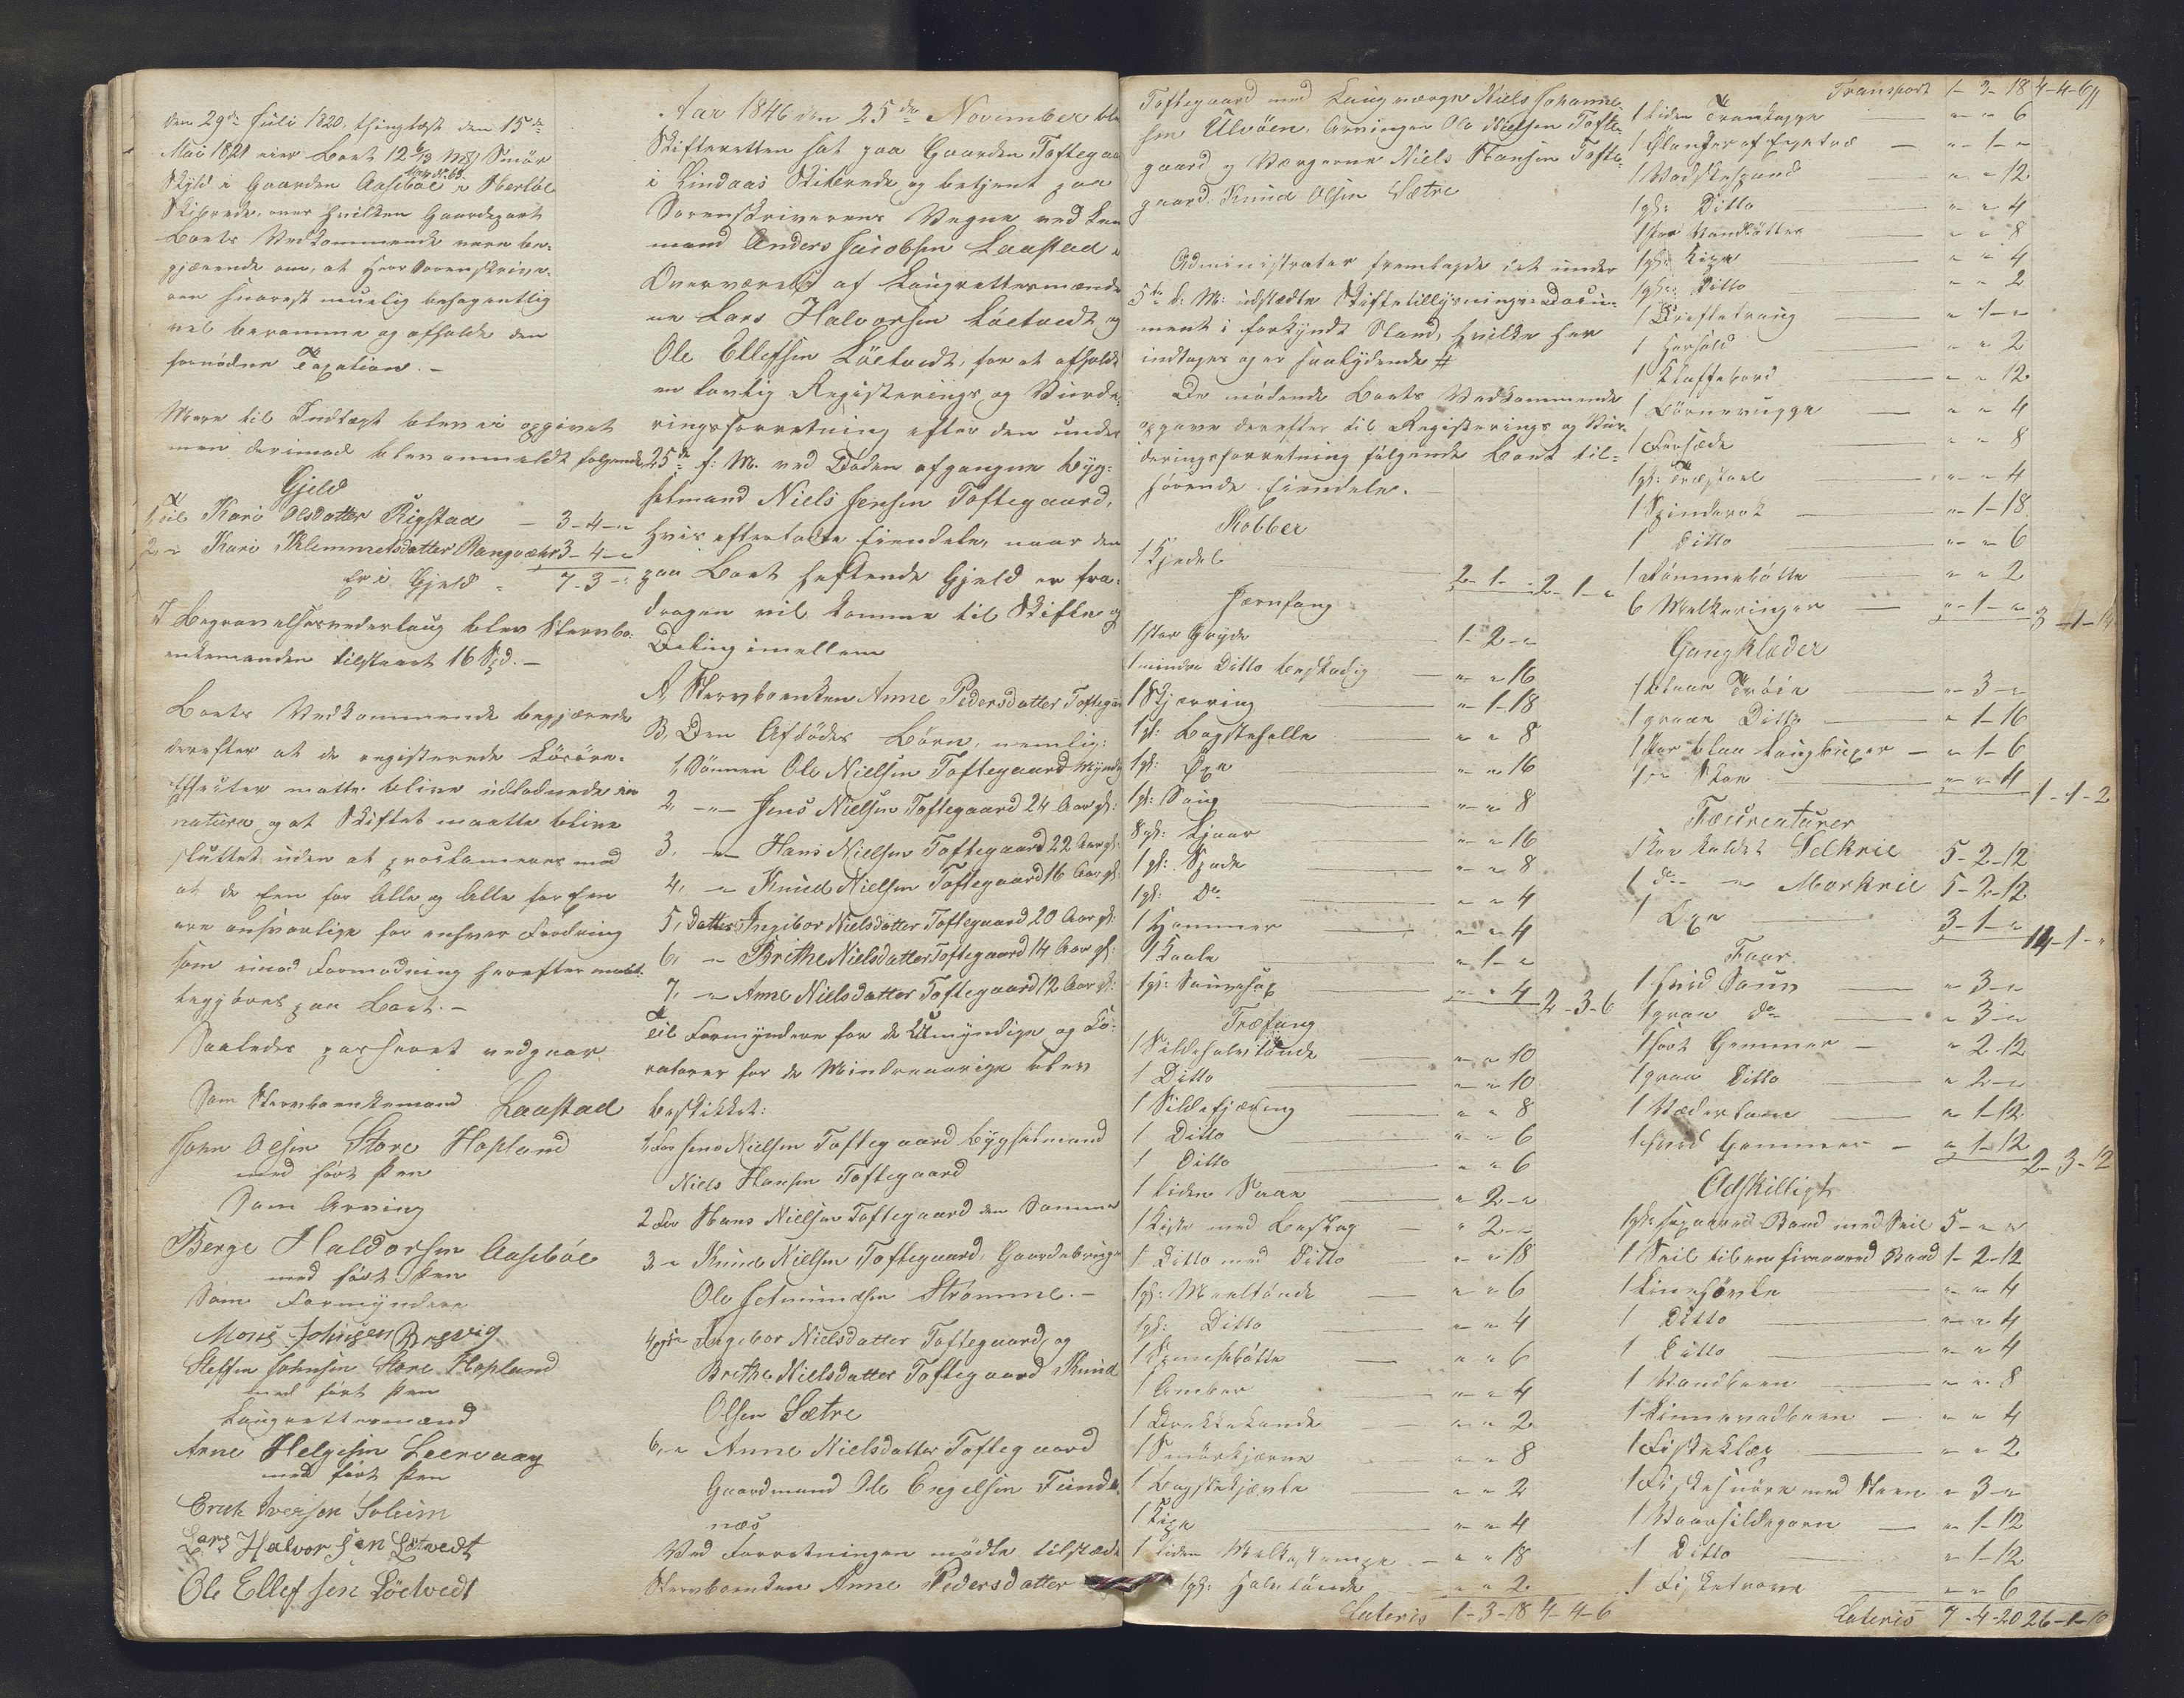 den 29de Juli 1820, thinglæst den 15de
Mai 1821 eier Boet 12 6/13 Mkl Smör
Skyld i Gaarden Aasebøe Løbe No 63 i Herløe
Skibrede, over hvilken Gaardepart
Boets Vedkommende vare be-
gjærende om, at Herr Sorenskrive-
ren snarest muelig behagentlig
vil beramme og afholde den
fornødne Taxation. -
Mere til Indtægt blev ei opgivet
men derimod blev anmeldt følgende
Gjeld
1, til Kari Olsdatter Rigstad - 3-4-"
2, " Kari Klemmetsdatter Rangvæhr 3-4-"
Er i Gjeld - 7-3-"
I Begravelsesvederlaug blev Stervbo-
enkemanden tilstaaet 16 Spd. -
Boets Vedkommende begjærede
derefter at de registrerede Løsøre-
Effecter matte blive udlodnede in
natura og at Skiftet maatte blive
sluttet uden at proclameres mod
at de Een for Alle og Alle for Een
ere ansvarlige for enhver Fordring
som imod Formodning herefter maatte
begjøres paa Boet. -
Saaledes passeret vedgaar
Som Stervboenkemand Laastad
John Olsen Store Hopland
med ført Pen
Som Arving
Berge Haldorsen Aasebøe
med ført Pen
Som Formyndere
Mons Johnsen
Steffen Johnsen Store Hopland
med ført Pen
Laugrettesmænd
Arne Helgesen Leervaag
med ført Pen
Erick Iversen Soleim
Lars Halvorsen Løtvedt
Ole Ellefsen Löetvedt
Aar 1846 den 25de November blev
Skifteretten sat paa Gaarden Toftegaa
i Lindaas Skibrede og betjent paa
Sorenskriverens Vegne ved Len
mand Anders Jacobsen Laastad i
Overværelse af Laugrettesmænde
ne Lars Halvorsen Løetvedt og
Ole Ellefsen Löetvedt, for at afholde
en lovlig Registerings og Vurde-
ringsforretning efter den under
25de f: M. ved Døden afgangne byg-
selmand Niels Jensen Toftegaard,
hvis efterladte Eiendele, naar den
paa Boet heftende Gjeld er fra-
dragen vil komme til Skifte og
Deling imellem
A, Stervboenken Anne Pedersdatter Toftegaa
B, Den Afdødes Børn, nemlig:
1, Sønnen Ole Nielsen Toftegaard Myndig
2, -"- Jens Nielsen Toftegaard 24 Aar gl:
3, -"- Hans Nielsen Toftegaard 22 Aar gl:
4, -"- Knud Nielsen Toftegaard 16 Aar gl:
5, Datter Ingibor Nielsdatter Toftegaard 20 Aar gl:
6, -"- Brithe Nielsdatter Toftegaard 14 Aar gl:
7, -"- Anne Nielsdatter Toftegaard 12 Aar gl:
Til Formyndere for de Umyndige og Cu-
ratorer for de Mindreaarige blev
beskikket:
1, For Jens Nielsen Toftegaard bygselmand
Niels Hansen Toftegaard
2 For Hans Nielsen Toftegaard den Samme
3 " Knud Nielsen Toftegaard, Gaardebruger
Ole Setmundsen Strømme. -
4 og 5 " Ingebor Nielsdatter Toftegaard, og
Brethe Nielsdatter Toftegaard Knud
Olsen Sætre
6, " Anne Nielsdatter Toftegaard
Gaardmand Ole Engelsen Funde-
næs
Ved Forretningen mødte tilstæde
Stervboenken Anne Pedersdatter
Toftegaard med Laugværge Niels Johanne-
sen Ulvøen, Arvingen Ole Nielsen Tofte-
gaard og Værgerne Niels Hansen Tofte-
gaard, Knud Olsen Sætre
Administrator fremlagde det under
5te d: M: udstædte Skiftetillysnings Docu-
ment i forkyndt Stand, hvilke her
indtages og er saalydende #
De mødende Boets Vedkommende
opgave derefter til Registerings og Vur-
deringsforretning følgende Boet til-
hørende Eiendele.
Kobber
1 Kjedel 2-1-" 2-1-"
Jernfang
1 stor Gryde 1-2-"
1 mindre Ditto beskadig "-"-16
1 Skjæring "-1-18
1 gl: Bagstehelle "-"-8
1 gl: Øxe "-"-16
1 gl: Saug "-"-8
8 gl: Ljaar "-"-16
1 gl: Spade "-"-8
1 gl: Do "-"-4
1 Hammer "-"-4
1 Kaale "-1-"
1 gl: Sauesax "-"-4 2-3-6
Træfang
1 Sildehalvtønde "-"-10
1 Ditto "-"-10
1 Sildefjæring "-"-8
1 Ditto "-"-6
1 Ditto "-"-6
1 liden Saae "-2-"
1 Kiste med Beslag "-2-"
1 Ditto med Ditto "-"-18
1 gl: Meeltønde "-"-6
1 gl: Ditto "-"-4
1 "-"-6
1 Ambar "-"-4
1 Drikkekande "-"-2
1 Smørkjærne "-"-8
1 Bagstekjævle "-"-2
1 Kipe "-"-4
1 liden Melkestampe "-"-18
1 gl: Halvtønde "-"-2
Lateris 1-3-18 4-4-6
Transport 1-3-18 4-4-6
1 liden Trankagge "-"-6
1 "-1-"
1 Vadskespand "-"-12
1 gl: Ditto "-"-4
1 stor Vandbøtte "-"-8
1 gl: Kipe "-"-4
1 gl: Ditto "-"-2
1 Drøftetraug "-1-"
1 "-"-2
1 Klaffebord "-"-12
1 Børnevugge "-"-4
1 "-"-8
1 gl: Træstoel "-"-4
1 Spinderok "-1-18
1 Ditto "-"-6
1 Rømmebøtte "-"-2
6 Melkeringer "-1-" 3-1-14
Gangklæder
1 blaae Trøie "-3-"
1 graae Ditto "-1-16
1 Par blaa Langbuxer "-1-6
1 " Skoe "-"-4 1-1-2
Fæcreaturer
1 Koe kaldet Selkrie 5-2-12
1 do " Morkrie 5-2-12
1 Qvæ 3-1-" 14-1-"
Faar
1 hvid Sau "-3-"
1 graa do "-3-"
1 sort Gemmer "-2-12
1 graa Ditto "-2-"
1 Væderlam "-1-12
1 hvid Gemmer "-1-12 2-3-12
Adskilligt
1 gl: sexaaret Baad med Seil 5-"-"
1 Seil til en fireaaret Baad 1-2-12
1 Linehøvle "-"-4
1 Ditto "-"-4
1 Ditto "-"-4
1 Vandbeen "-"-8
1 "-"-4
1 Fiskeklæp "-"-2
1 Fiskesnøre med Steen "-3-"
1 Vaarsildegarn "-1-12
1 Ditto "-1-12
1 "-"-6
Lateris 7-4-20 26-1-10